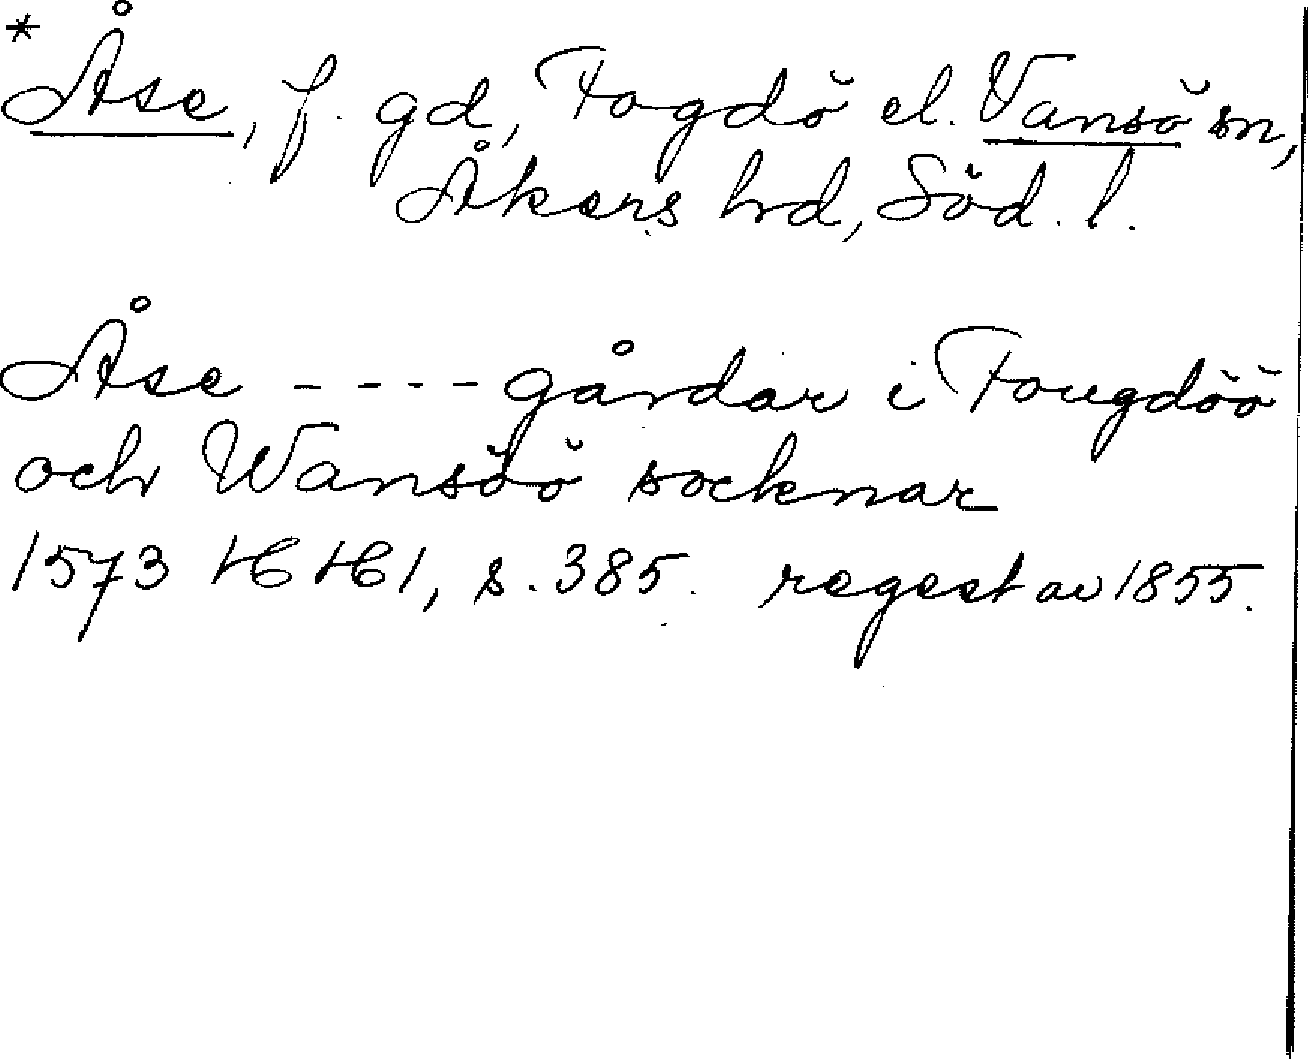 *Åse, f. gd, Fogdö el. Vansö sn,
Åkers hd, Söd. l.
Åse - - - - gårdar i Fougdöö
och Wansöö socknar
1573 HH1, s. 385. regest av 1855.